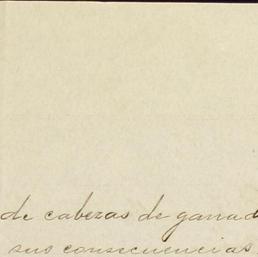 de cabezas de ganad
sus consecuencias